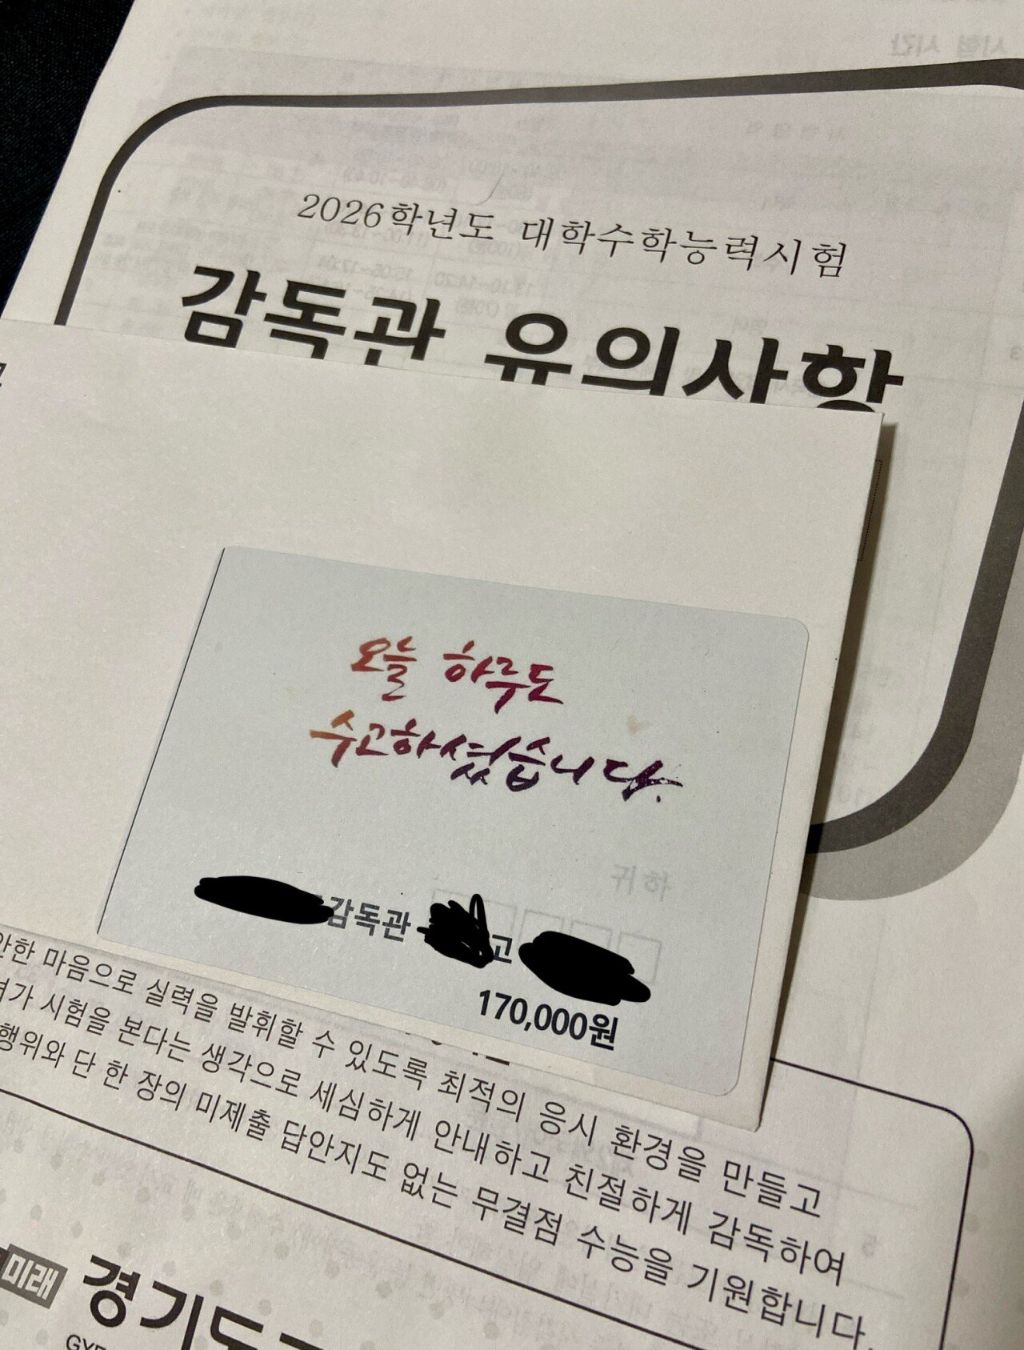 2026학년도 대학수학능력시험
감독관 유의사항
오늘 하루도
수고하셨습니다.
감독관 고
170,000원
마음으로 실력을 발휘할 수 있도록 최적의 응시 환경을 만들고
시험을 본다는 생각으로 세심하게 안내하고 친절하게 감독하여
행위와 단 한 장의 미제출 답안지도 없는 무결점 수능을 기원합니다.
미래 경기도